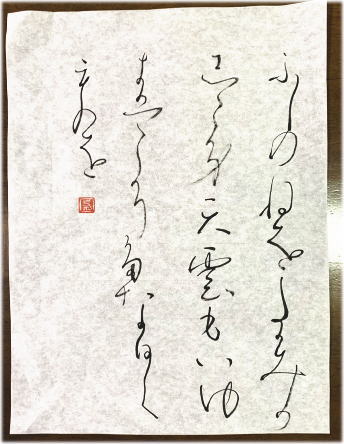 ふしのねをたかみか
しこみ天雲もいゆ
きはゝかりたなひく
ものを